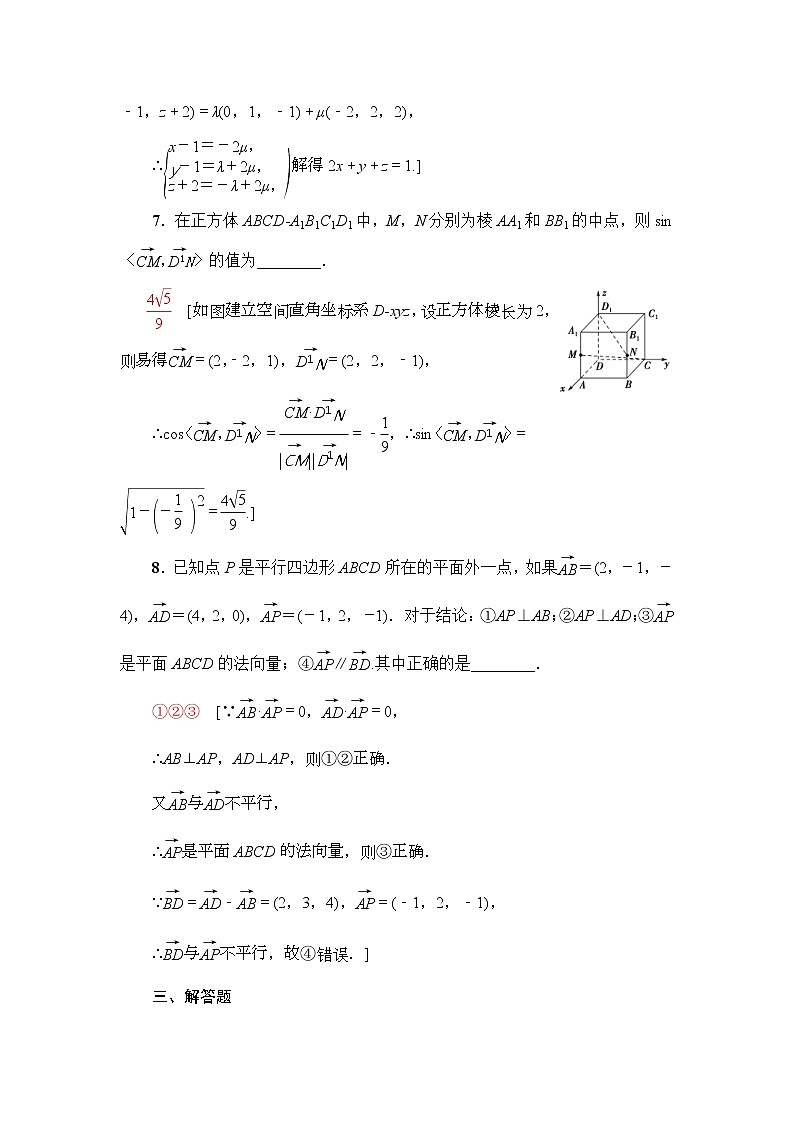 －1，z＋2)＝λ(0，1，－1)＋μ(－2，2，2)，
∴{x－1＝－2μ，
y－1＝λ＋2μ，
z＋2＝－λ＋2μ，)解得 2x＋y＋z＝1.]
7．在正方体 ABCD-A₁B₁C₁D₁中，M，N分别为棱 AA₁和 BB₁的中点，则 sin
〈CM→，D1N→〉的值为________．
4√5/9 [如图建立空间直角坐标系 D-xyz，设正方体棱长为 2，
则易得CM→＝(2，－2，1)，D1N→＝(2，2，－1)，
∴cos〈CM→，D1N→〉＝CM→·D1N→/|CM→||D1N→|＝－1/9，∴sin〈CM→，D1N→〉＝
√(1－(－1/9)²)＝4√5/9.]
z
D₁
C₁
A₁
B₁
M
N
D
C
y
x
A
B
8．已知点 P 是平行四边形 ABCD 所在的平面外一点，如果AB→＝(2，－1，－
4)，AD→＝(4，2，0)，AP→＝(－1，2，－1)．对于结论：①AP⊥AB；②AP⊥AD；③AP→
是平面 ABCD 的法向量；④AP→∥BD→.其中正确的是________．
①②③ [∵AB→·AP→＝0，AD→·AP→＝0，
∴AB⊥AP，AD⊥AP，则①②正确．
又AB→与AD→不平行，
∴AP→是平面 ABCD 的法向量，则③正确．
∵BD→＝AD→－AB→＝(2，3，4)，AP→＝(－1，2，－1)，
∴BD→与AP→不平行，故④错误．]
三、解答题